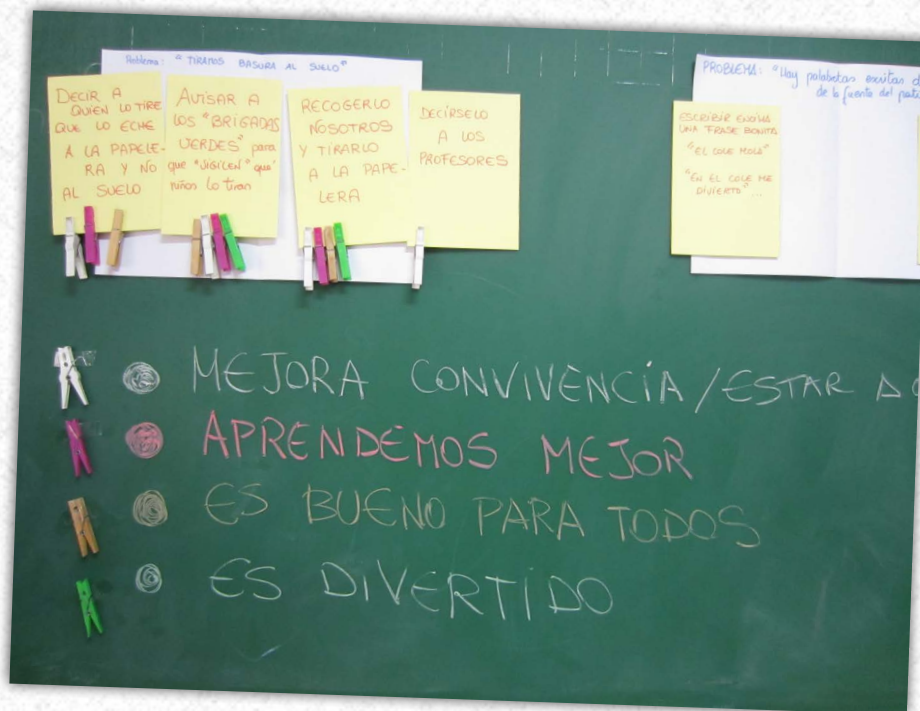 Problema: "TIRAMOS BASURA AL SUELO"
DECIR A
QUIEN LO TIRE
QUE LO ECHE
A LA PAPELE-
RA Y NO
AL SUELO
AVISAR A
LOS "BRIGADAS
VERDES" para
que "VIGILEN" que
niños lo tiran
RECOGERLO
NOSOTROS
Y TIRARLO
A LA PAPE-
LERA
DECÍRSELO
A LOS
PROFESORES
PROBLEMA: "Hay palabrotas escritas
de la fuente del
ESCRIBIR ENCIMA
UNA FRASE BONITA
"EL COLE MOLA"
"EN EL COLE ME
DIVIERTO"...
MEJORA CONVIVENCIA/ESTAR
APRENDEMOS MEJOR
ES BUENO PARA TODOS
ES DIVERTIDO